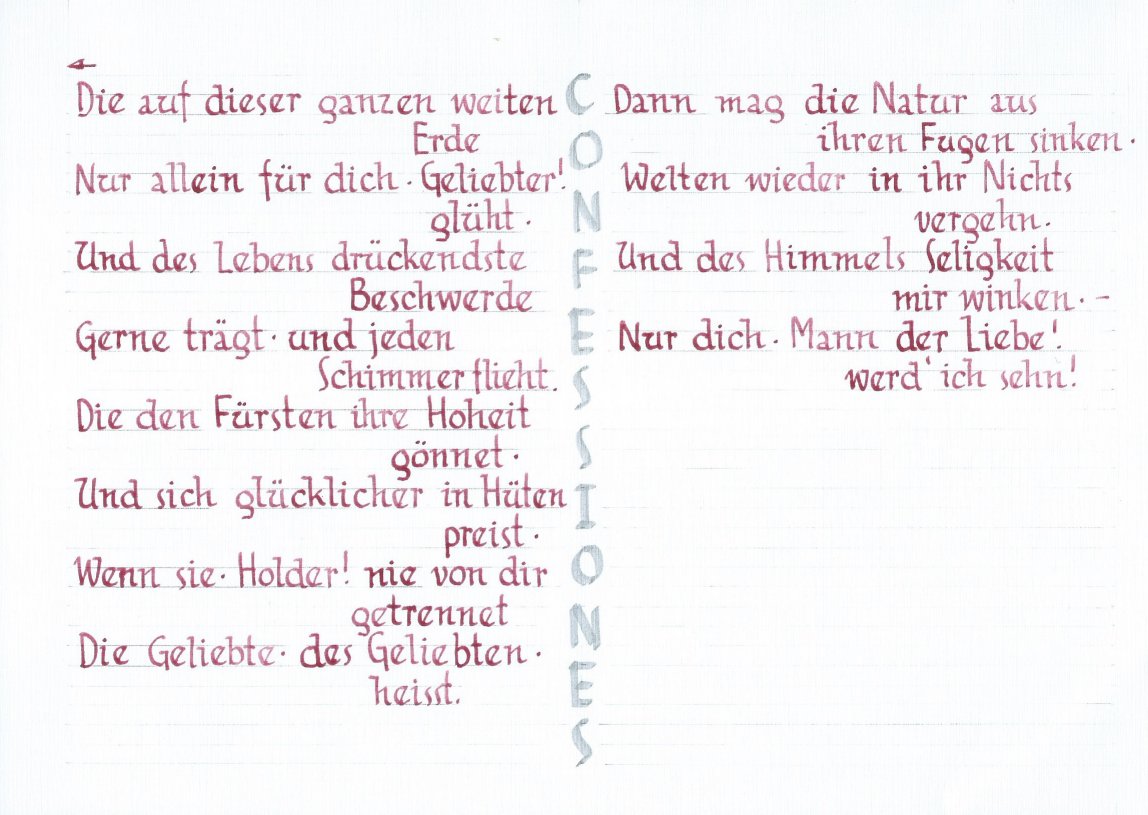 Die auf dieser ganzen weiten
Erde
Nur allein für dich · Geliebter!
glüht ·
Und des Lebens drückendste
Beschwerde
Gerne trägt · und jeden
Schimmer flieht.
Die den Fürsten ihre Hoheit
gönnet ·
Und sich glücklicher in Hüten
preist ·
Wenn sie · Holder! nie von dir
getrennet
Die Geliebte · des Geliebten ·
heisst.
CONFESSIONES
Dann mag die Natur aus
ihren Fugen sinken ·
Welten wieder in ihr Nichts
vergehn ·
Und des Himmels Seligkeit
mir winken · –
Nur dich · Mann der Liebe!
werd' ich sehn!